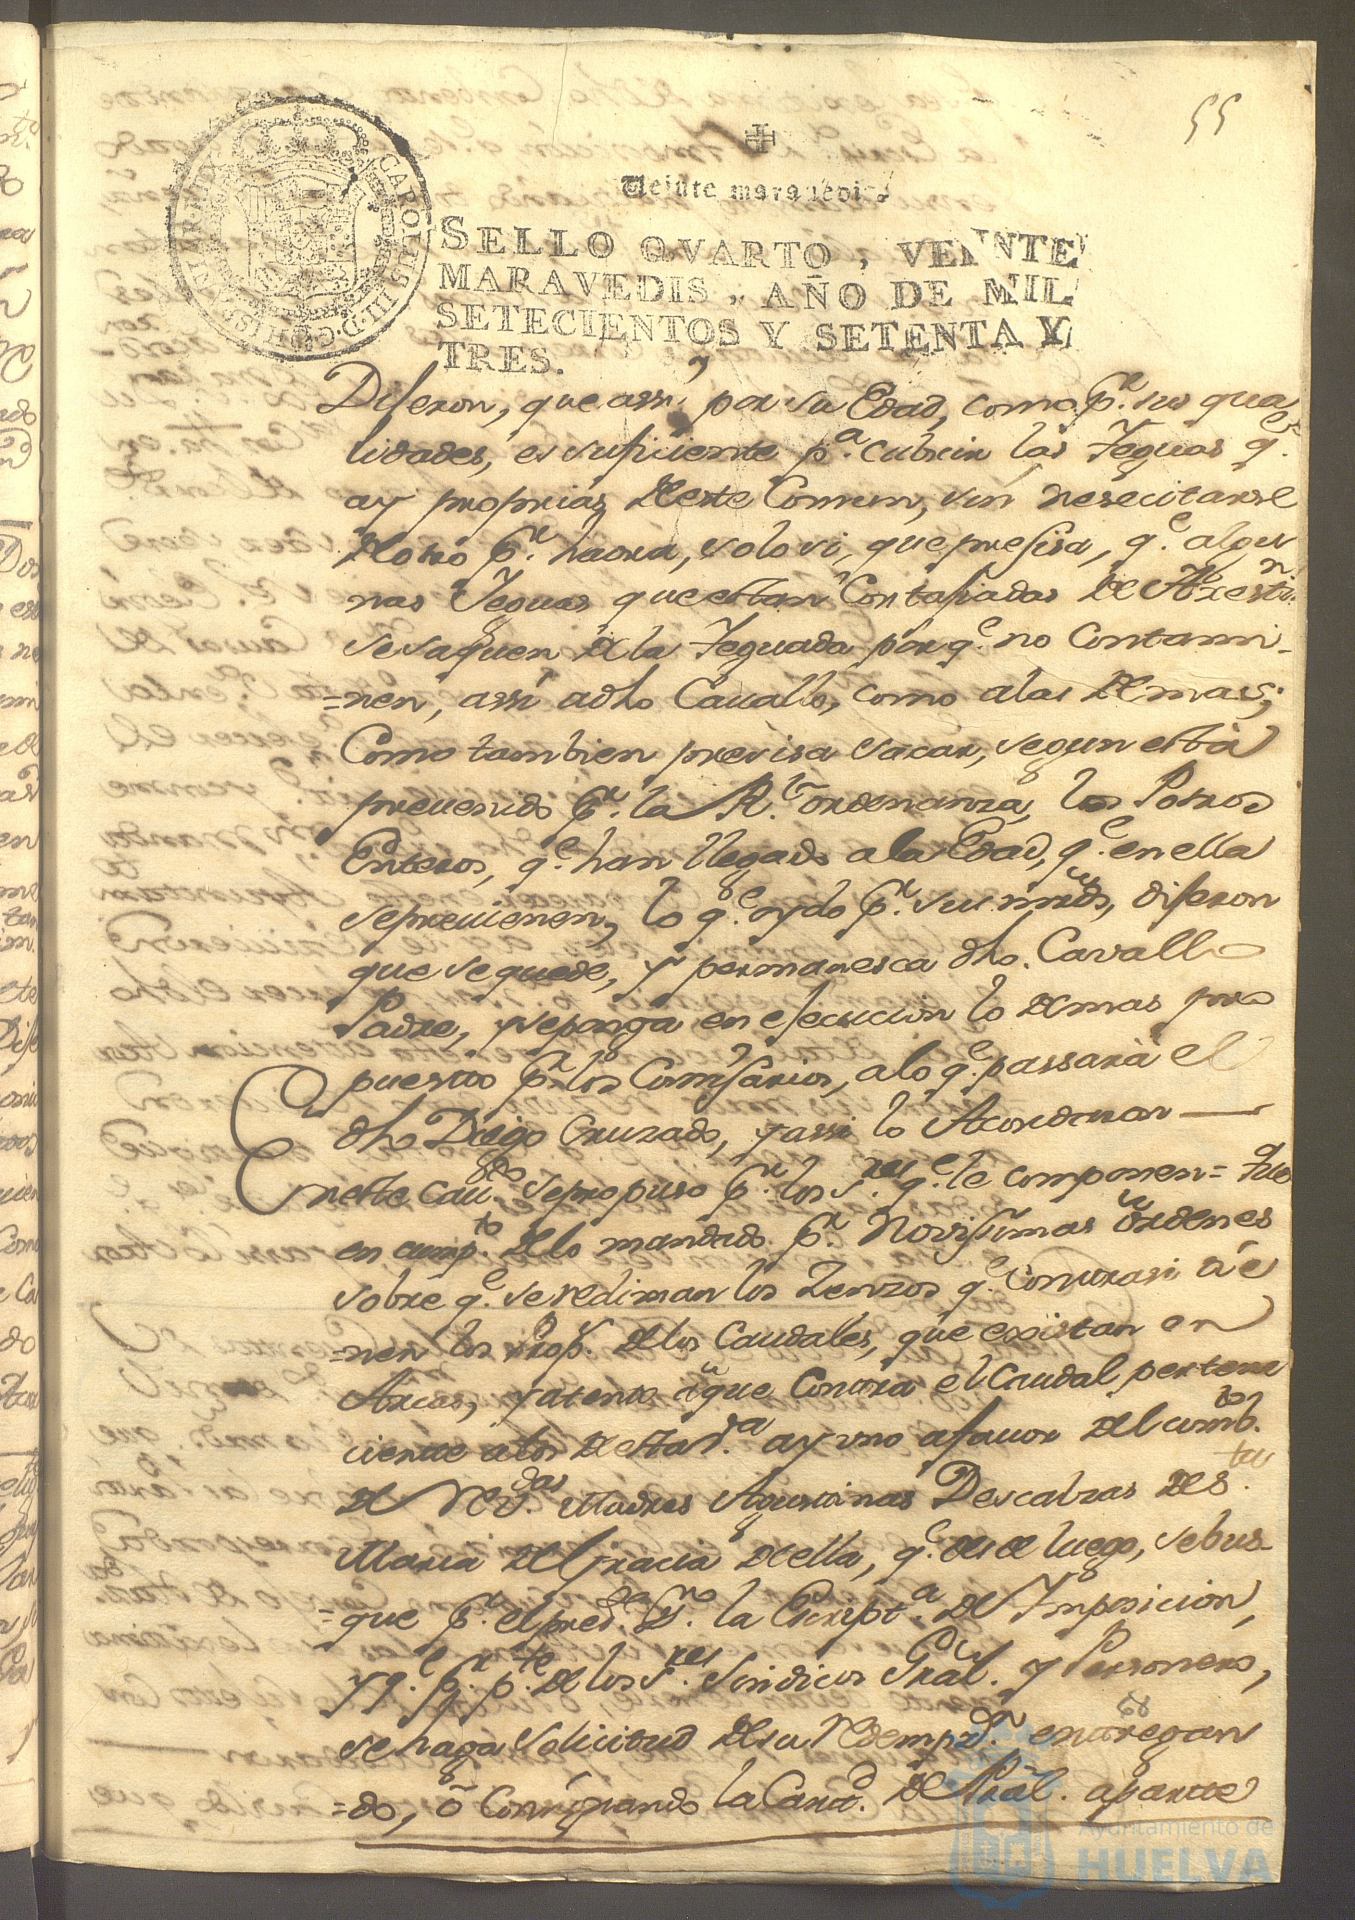 55
Veinte maravedis
SELLO QVARTO, VEINTE
MARAVEDIS, AÑO DE MIL
SETECIENTOS Y SETENTA Y
TRES.
CAROLUS III. D. G. HISP
Dijeron, que assi, por su Edad, como pr. sus qua
lidades, es suficiente pa. cubrir las Yeguas qe.
ay proprias deeste Comun, sin nesecitarse
de otro pr. haora, solo si, que presisa, qe. algu
nas Yeguas que estan Contajiadas de
se saquen de la Yeguada por qe. no contami-
=nen, assi a dho Cauallo, como a las demas;
Como tambien presisa sacar, segun està
preuenido pr. la Rl. ordenanza, los Potros
Enteros, qe. han llegado a la Edad, qe. en ella
se preuienen, lo qe. oydo pr. sus mrds, dijeron
que se quede, y permanesca dho. Cavallo
Padre, y se ponga en ejecucion lo demas pro
puesto pr. los Comisarios, a lo qe. passarà el
dho Diego Cruzado, y assi lo Acordaron
Eneste Cauildo se propuso pr. los Sres. qe. le componen = Que
en cumpto. de lo mandado pr. Novissimas ordenes
sobre qe. se rediman los Zenzos qe. contra si tie
=nen los Prop. de los Caudales, que existan en
Arcas, y atento à que Contra el Caudal pertene
ciente a los de esta Va. ay uno a fauor del combto.
de Revdas. Madres Agustinas Descalzas de Sta.
Maria de Gracia de ella, qe. desde luego, se bus-
=que pr. el preste. Essno. la Escripta. de Imposicion,
y qe. pr. pte. de los Sres. Sindicos Gral. y Personero,
se haga solicitud de su redempon. entregan
=do, ò Consignando la Cantd. de Pral. aparte
Ayuntamiento de
HUELVA